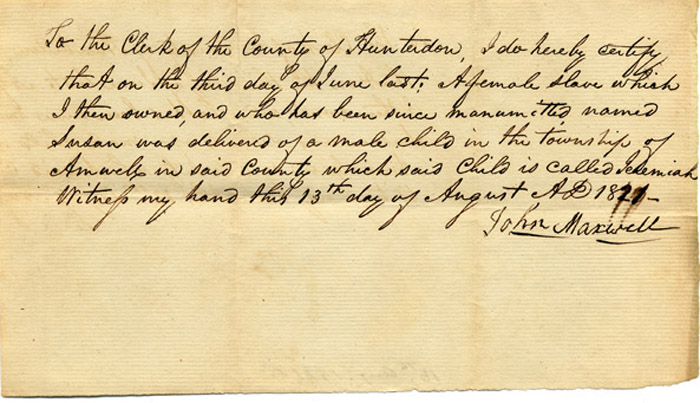 To the Clerk of the County of Hunterdon, I do hereby certify
that on the third day of June last. A female slave which
I then owned, and who has been since manumitted, named
Susan was deliverd of a male child in the township of
Amwell in said County which said Child is called Jeremiah
Witness my hand this 13th day of August AD 1821—
John Maxwell